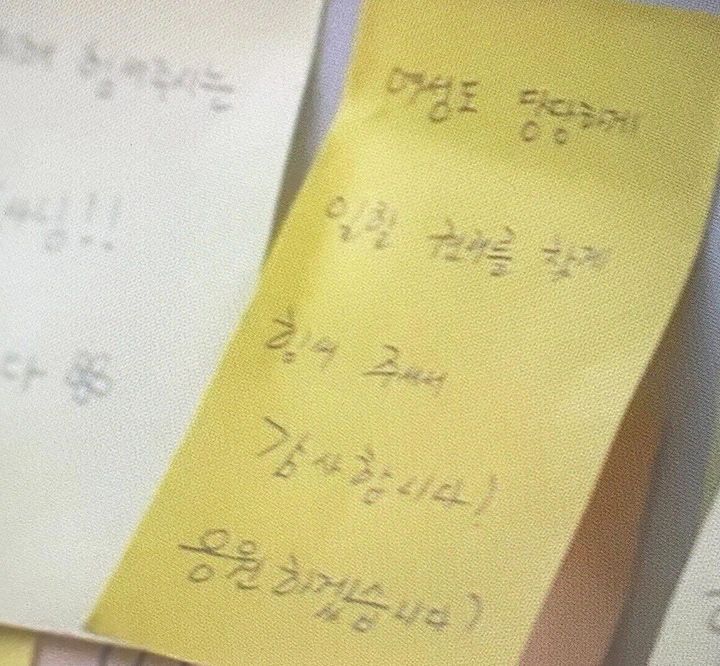 힘써주시는
사님!!
다
여성도 당당하게
일할 권리를 함께
힘써 주셔서
감사합니다!
응원하겠습니다)